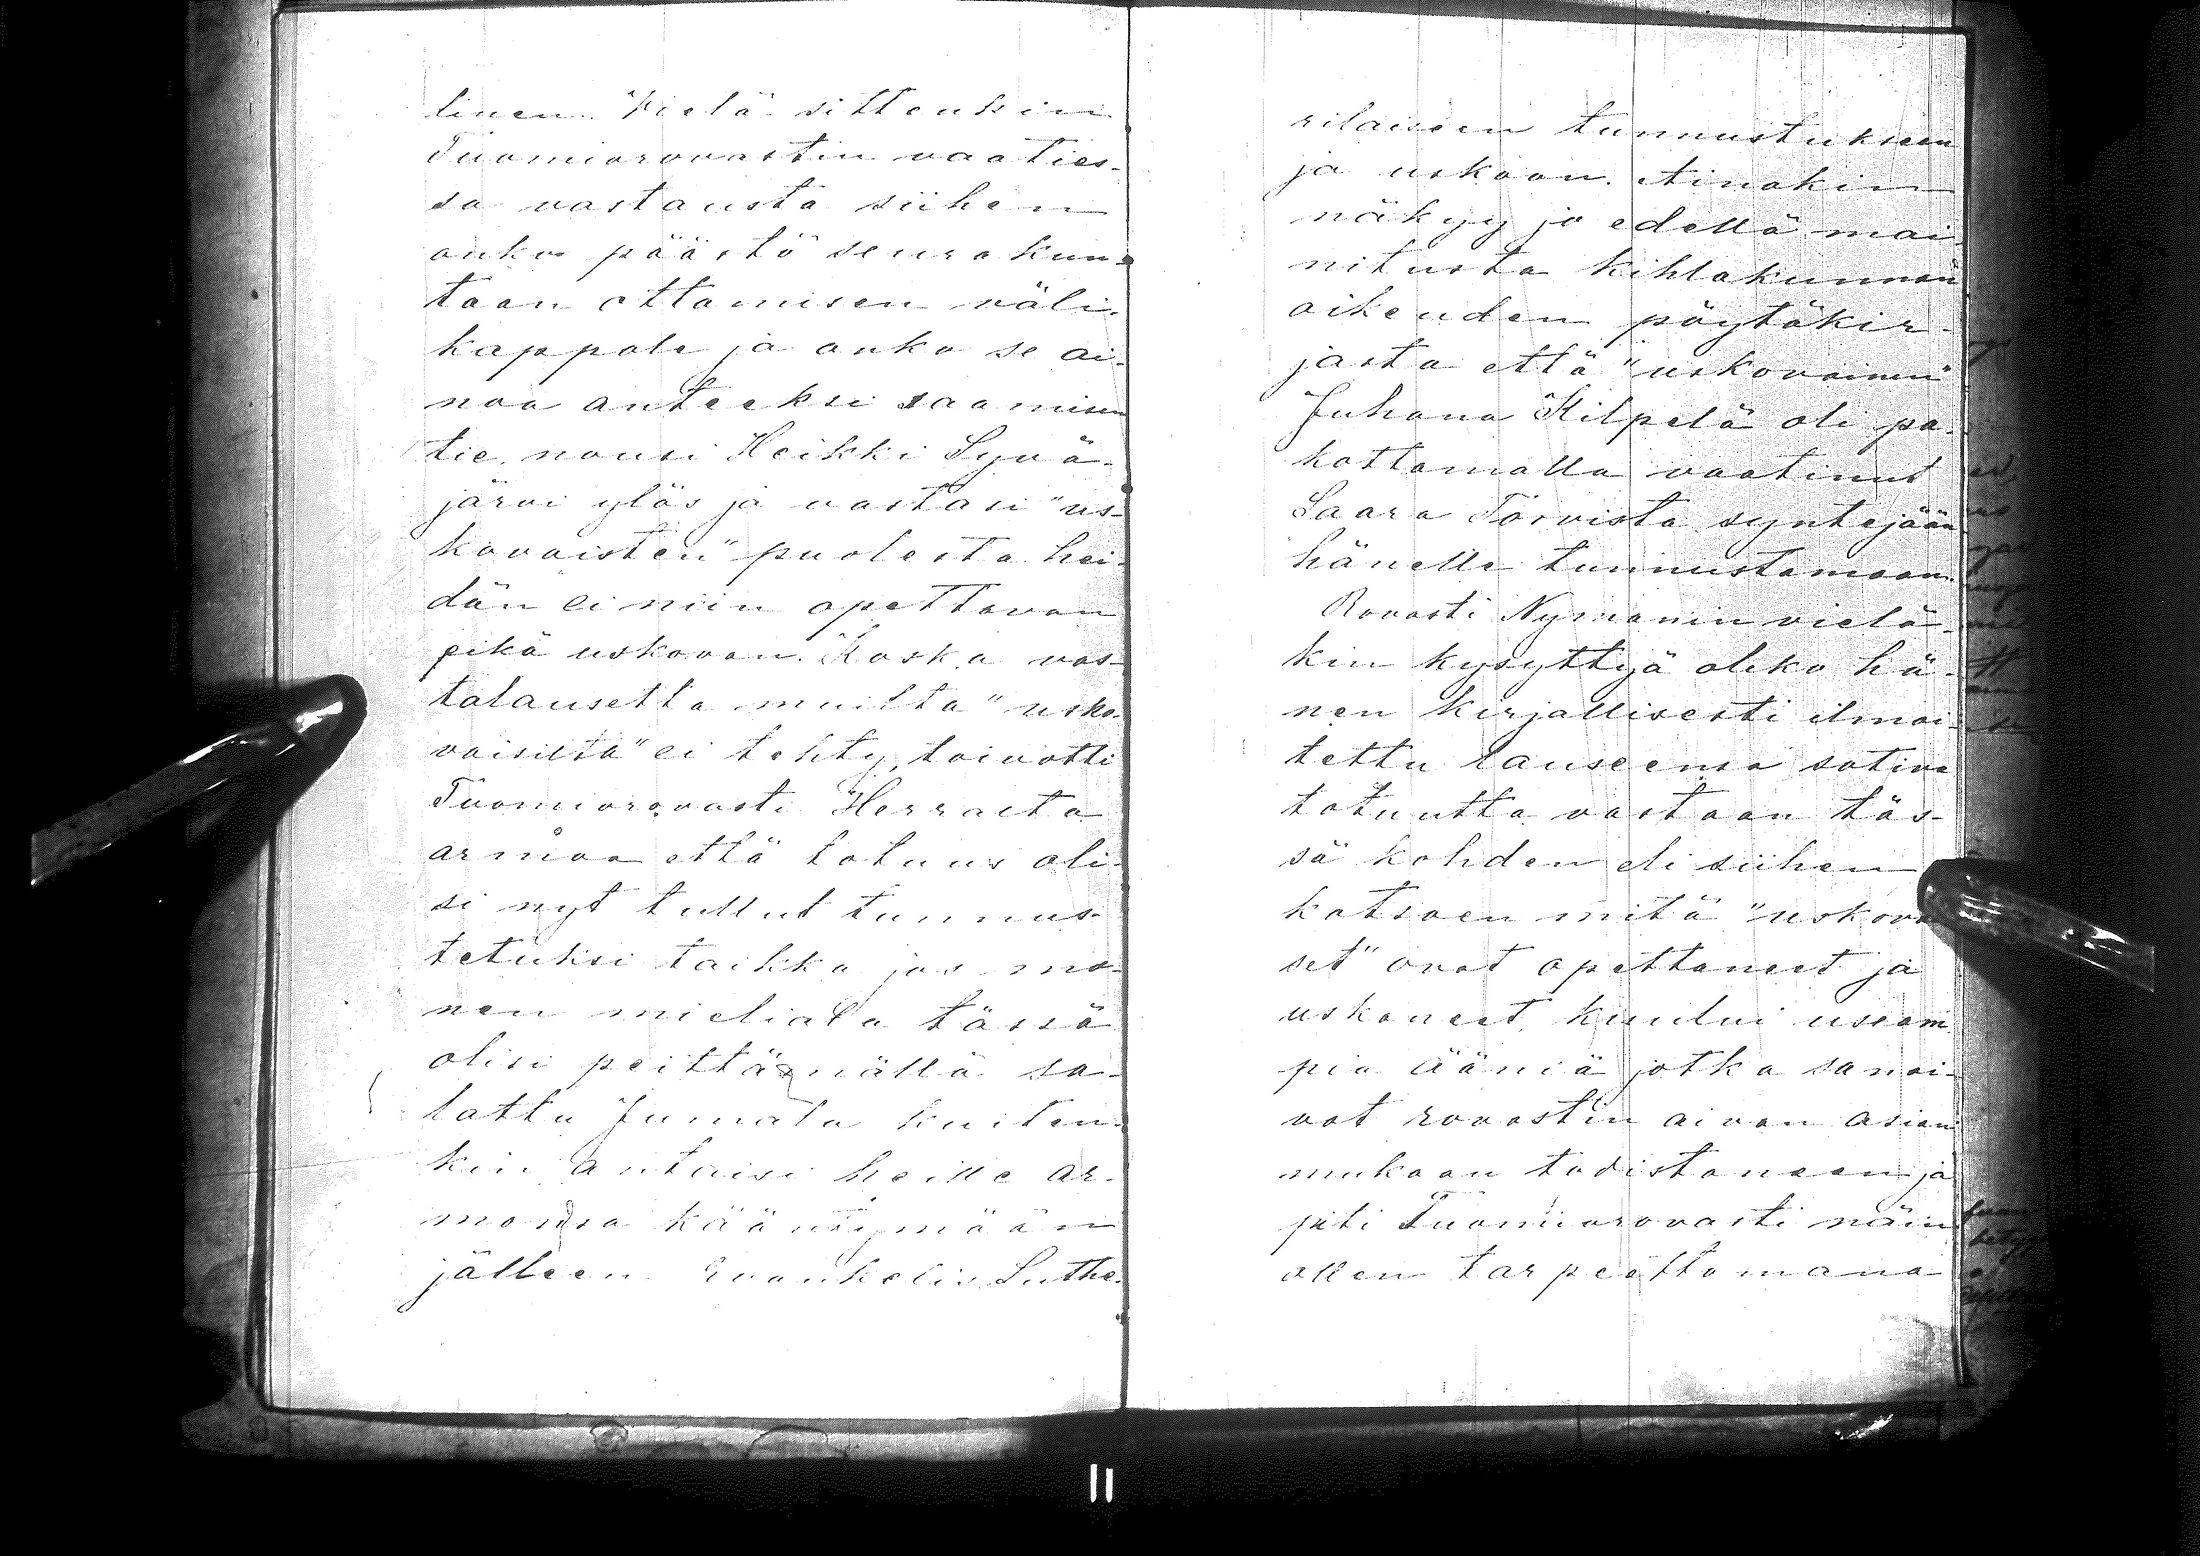 linen. Vielä sittenkin
Tuomiorovastin vaaties-
sa vastausta siihen
onko päästö seurakun-
taan ottamisen väli-
kappale ja onko se ai-
noa anteeksi saamisen
tie, nousi Heikki Syvä-
järvi ylös ja vastasi "us-
kovaisten" puolesta hei-
dän ei niin opettavan
eikä uskovan. Koska vas-
talausetta muilta "usko-
vaisilta" ei tehty, toivotti
Tuomiorovasti Herralta
armoa että totuus oli-
si nyt tullut tunnus-
tetuksi taikka jos mo-
nen mieliala tässä
olisi peittämällä sa-
lattu Jumala kuiten-
kin antaisi heille ar-
monsa kääntymään
jälleen Evankelis Luthe-
rilaiseen tunnustukseen
ja uskoon. Ainakin
näkyy jo edellä mai-
nitusta kihlakunnan
oikeuden pöytäkir-
jasta että "uskovainen"
Juhana Kilpelä oli pa-
kottamalla vaatinut
Saara Törvistä syntejään
hänelle tunnustamaan.
Rovasti Nymanin vielä-
kin kysyttyä oliko hä-
nen kirjallisesti ilmoi-
tettu lauseensa sotiva
totuutta vastaan täs-
sä kohden eli siihen
katsoen mitä "uskovai
set" ovat opettaneet ja
uskoneet, kuului useam
pia ääniä jotka sanoi-
vat rovastin aivan asian
mukaan todistaneen ja
piti Tuomiorovasti näin
ollen tarpeettomana